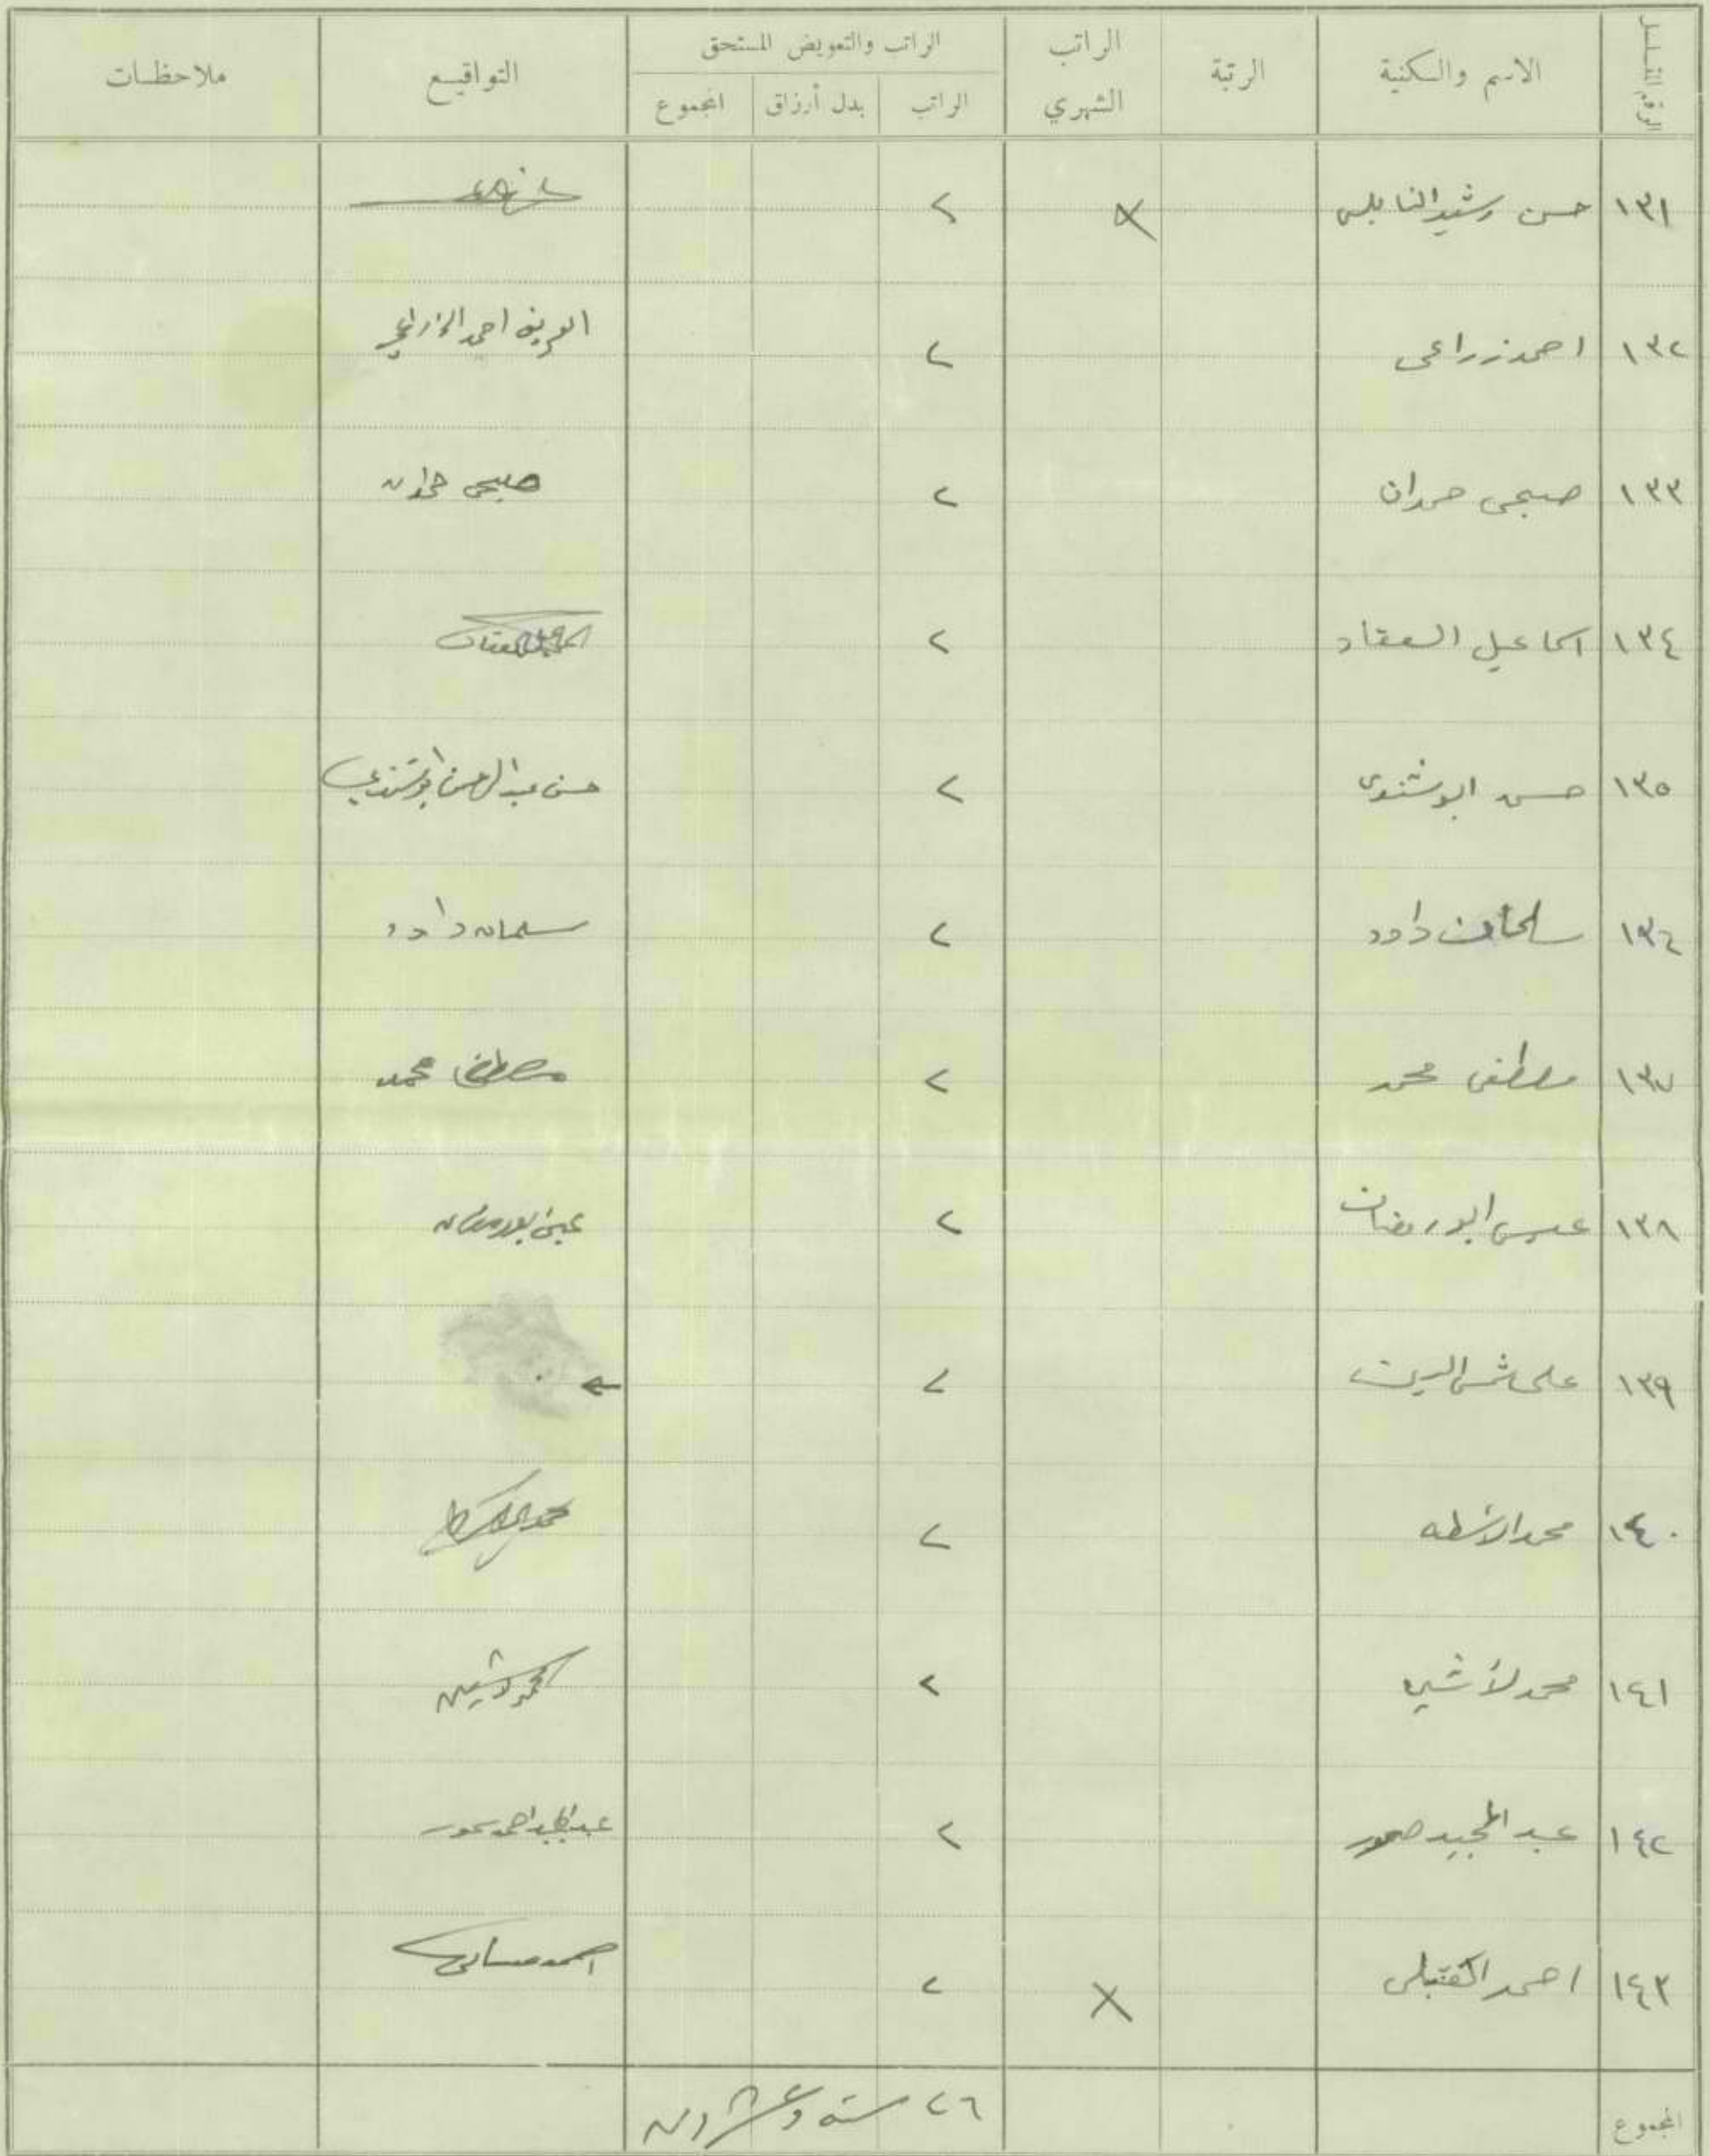 الرقم المتسلسل الاسم والكنية الرتبة الراتب الشهري الراتب والتعويض المستحق التواقيع ملاحظات
الراتب بدل أرزاق المجموع
١٣١ حسن رشيد النابلسي X ٢
١٣٢ احمد زراعي ٢ العريف احمد الزراعي
١٣٣ صبحي حمدان ٢ صبحي حمدان
١٣٤ اسماعيل العقاد ٢ اسماعيل العقاد
١٣٥ حسن ابو شندي ٢ حسن عبد الرحمن ابو شندي
١٣٦ سلمان داود ٢ سلمان داود
١٣٧ مصطفى محمد ٢ مصطفى محمد
١٣٨ عيسى ابو رمضان ٢ عيسى ابو رمضان
١٣٩ علي شمس الدين ٢ ←
١٤٠ محمد الاسطه ٢ محمد
١٤١ محمد لاشين ٢ محمد لاشين
١٤٢ عبد المجيد صحور ٢ عبد المجيد احمد
١٤٣ احمد ٢ X احمد
المجموع ٢٦ سته وعشرون